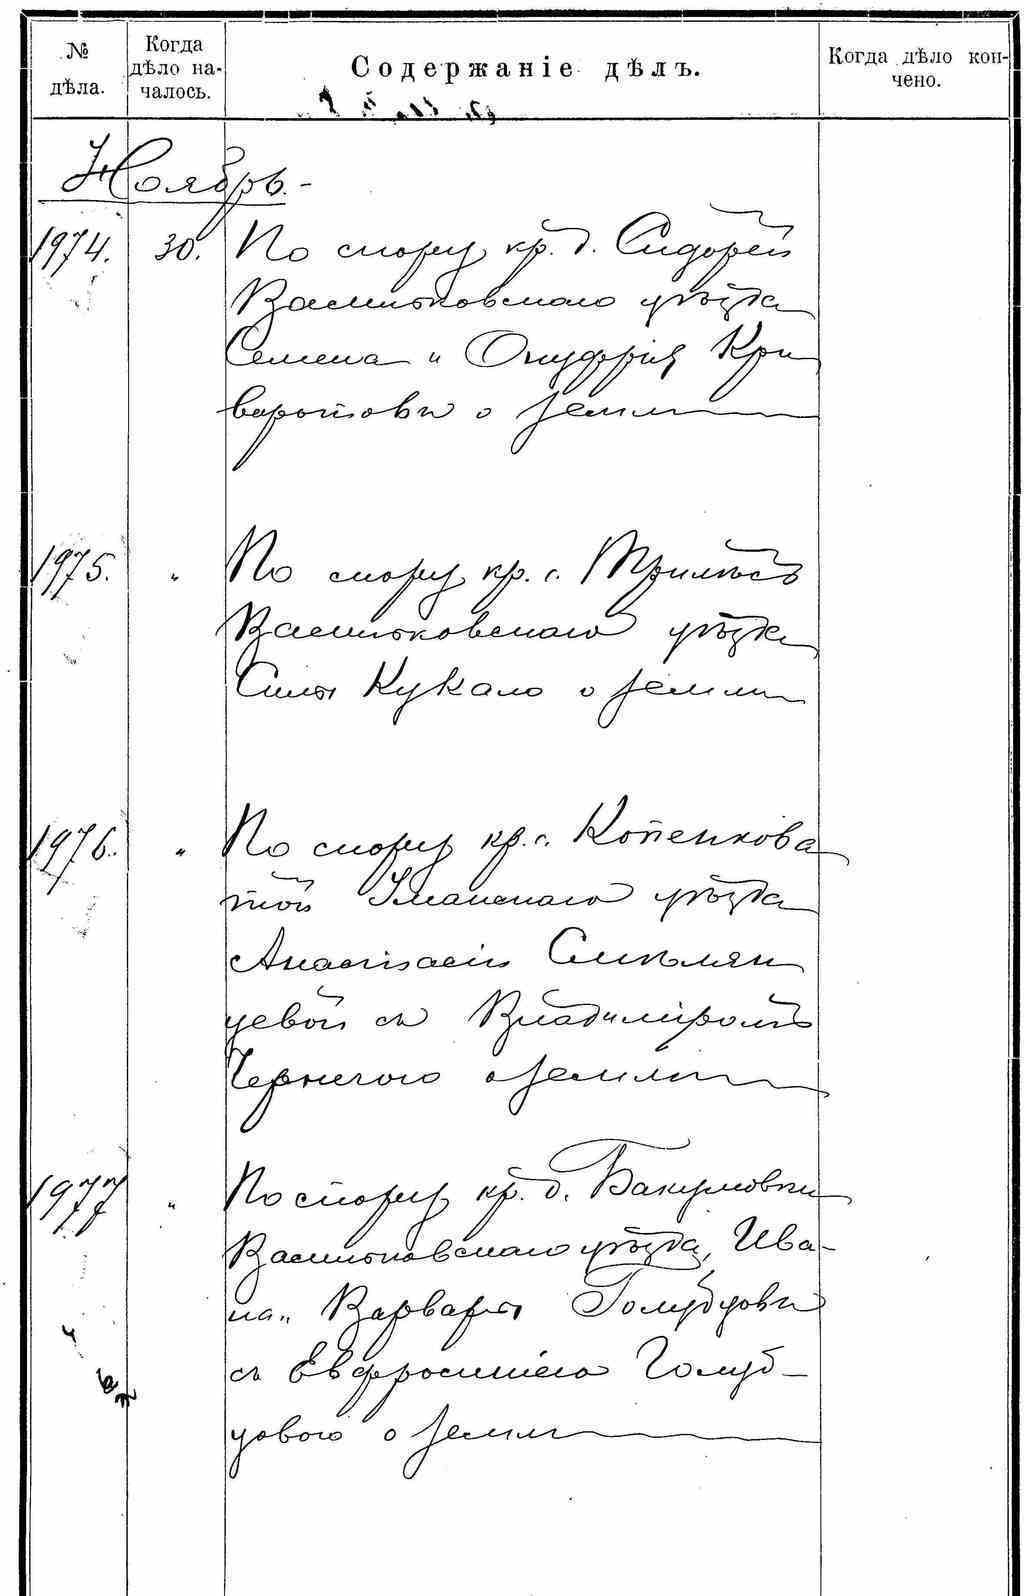 № дѣла.
Когда дѣло на-
чалось.
Содержаніе дѣлъ.
Когда дѣло кон-
чено.
Ноябрь.-
1974. 30. По спору кр. д. Сидорей
Васильковскаго уѣзда
Семена и Онуфрія Кри
воротовы о земли
1975. " По спору кр. с. Трилѣсъ
Васильковскаго уѣзда
Силы Кукало о земли
1976. " По спору кр. с. Копенкова
той Уманскаго уѣзда
Анастасіи Смолян
цевой съ Владиміромъ
Чернегою о земли
1977 " По спору кр. д. Бакумовки
Васильковскаго уѣзда, Ива-
на и Варвары Голубцовы
съ Евфросиніею Голуб-
цовою о земли